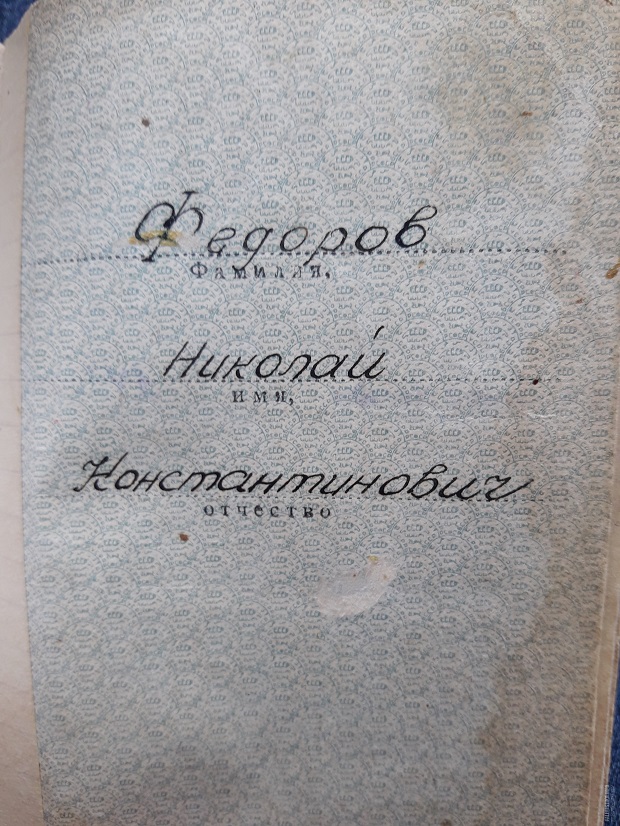 Федоров
Фамилия,
Николай
имя,
Константинович
отчество